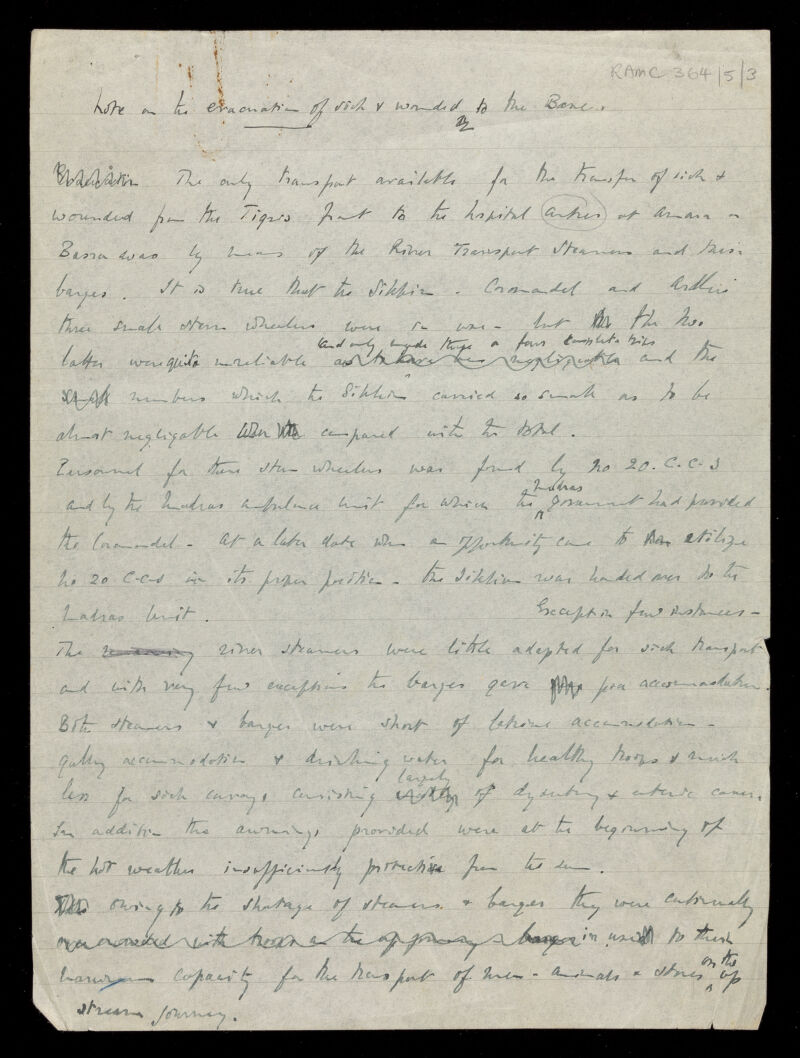 RAMC 364/5/3
Note on the evacuation of sick & wounded to the Base.
The only transport available for the transfer of sick &
wounded from the Tigris front to the hospital centres at Amara &
Basra was by means of the River Transport Steamers and their
barges. It is true that the Sikhim - Coromandel and
three small stern wheelers were in use - but the two
and only made three or four complete trips
latter were quite unreliable and the
numbers which the Sikhim carried so small as to be
almost negligable compared with the total.
Personnel for these stern wheelers was found by No 20. C.C.S
Madras
and by the Madras ambulance unit for which the Government had provided
the Coromandel - At a later date when an opportunity came to utilize
No 20 C.C.S in its proper position - the Sikhim was handed over to the
Madras Unit. Except in few instances -
The river steamers were little adapted for sick transport
and with very few exceptions the barges gave poor accommodation.
Both steamers & barges were short of latrine accommodation -
galley accommodation & drinking water for healthy troops & much
largely
less for sick convoys consisting of dysentery & enteric cases.
In addition the awnings provided were at the beginning of
the hot weather insufficiently protective from the sun.
owing to the shortage of steamers & barges they were continually
in use to their
on the
maximum capacity for the transport of men - animals & stores up
stream journey.